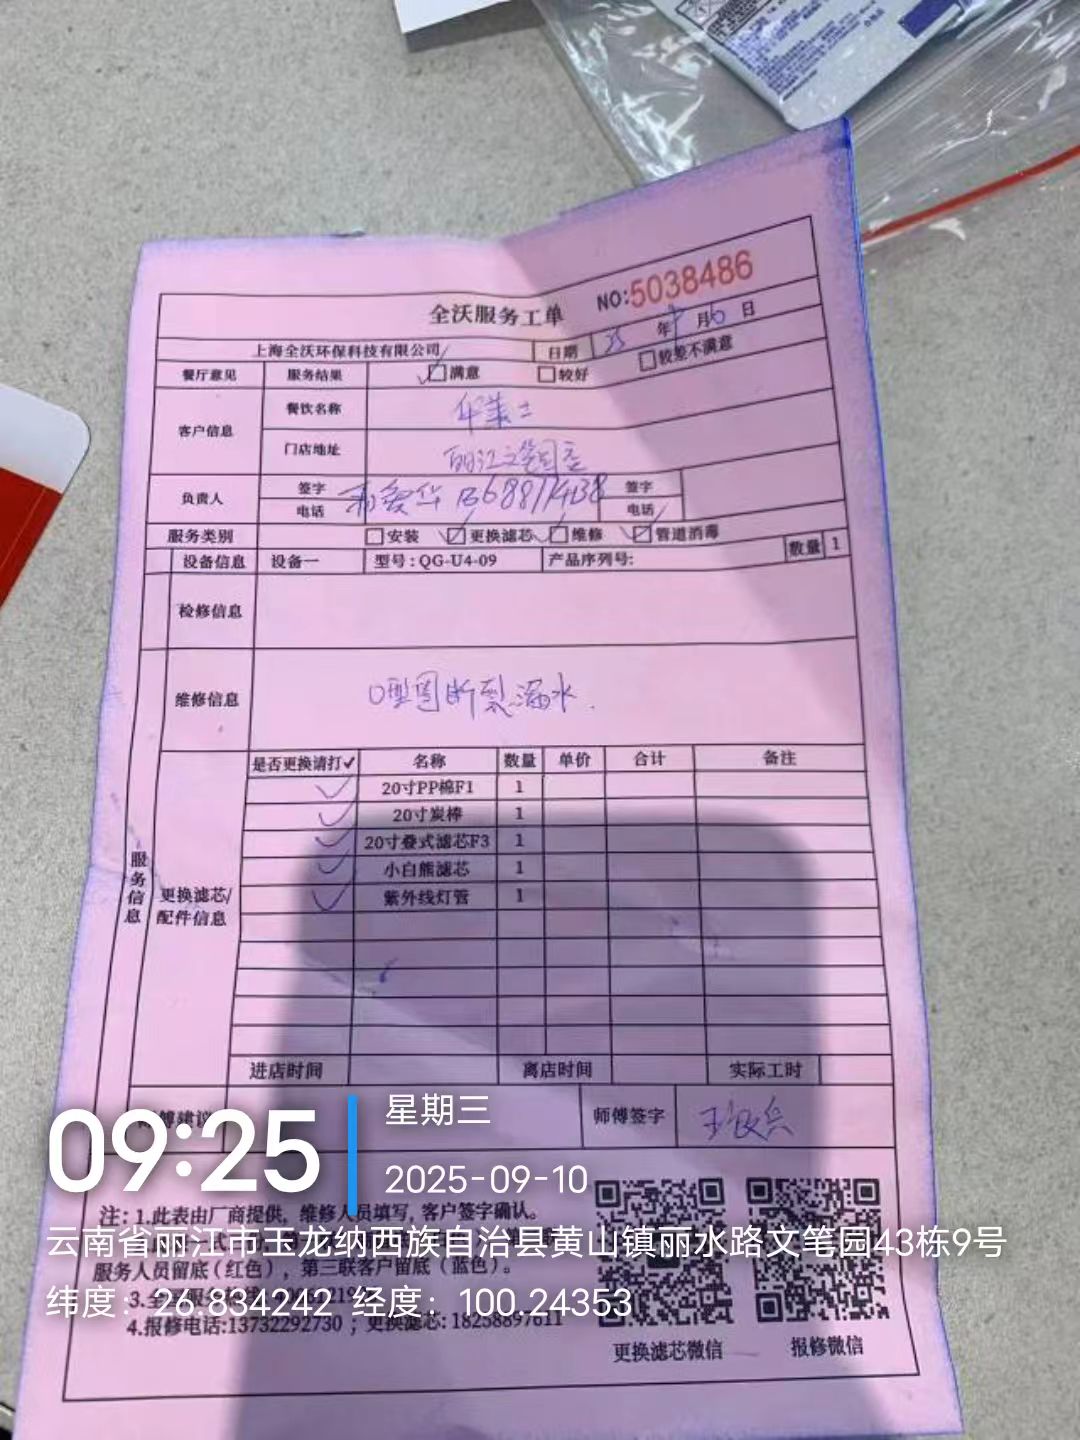 全沃服务工单 NO:5038486
上海全沃环保科技有限公司 日期 25 年9月10日
餐厅意见 服务结果 满意 较好 较差不满意
客户信息 餐饮名称 华莱士
门店地址 丽江文笔园店
负责人 签字 签字
电话 电话
服务类别 安装 更换滤芯 维修 管道消毒
设备信息 设备一 型号:QG-U4-09 产品序列号: 数量 1
检修信息
维修信息 O型圈断裂漏水.
服务信息
更换滤芯/配件信息
是否更换请打✓ 名称 数量 单价 合计 备注
✓ 20寸PP棉F1 1
✓ 20寸炭棒 1
✓ 20寸叠式滤芯F3 1
✓ 小白熊滤芯 1
✓ 紫外线灯管 1
进店时间 离店时间 实际工时
师傅签字
09:25 星期三
2025-09-10
注: 1.此表由厂商提供, 维修人员填写, 客户签字确认。
云南省丽江市玉龙纳西族自治县黄山镇丽水路文笔园43栋9号
服务人员留底(红色), 第三联客户留底(蓝色)。
纬度: 26.834242 经度: 100.24353
4.报修电话:13732292730 ; 更换滤芯: 18258897611
更换滤芯微信 报修微信